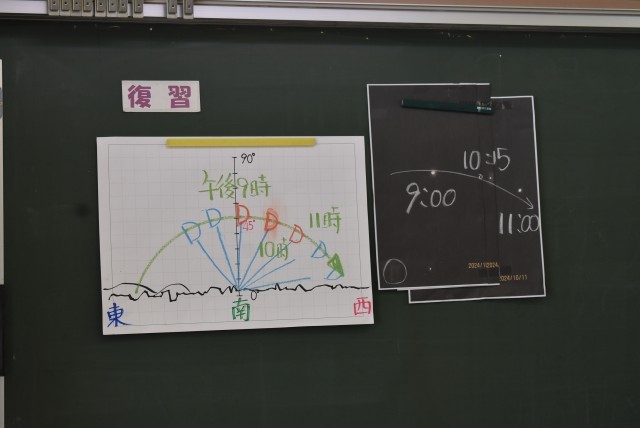 復習
90°
午後9時
45°
11時
10時
0
東
南
西
10:15
9:00
11:00
2024/10/11